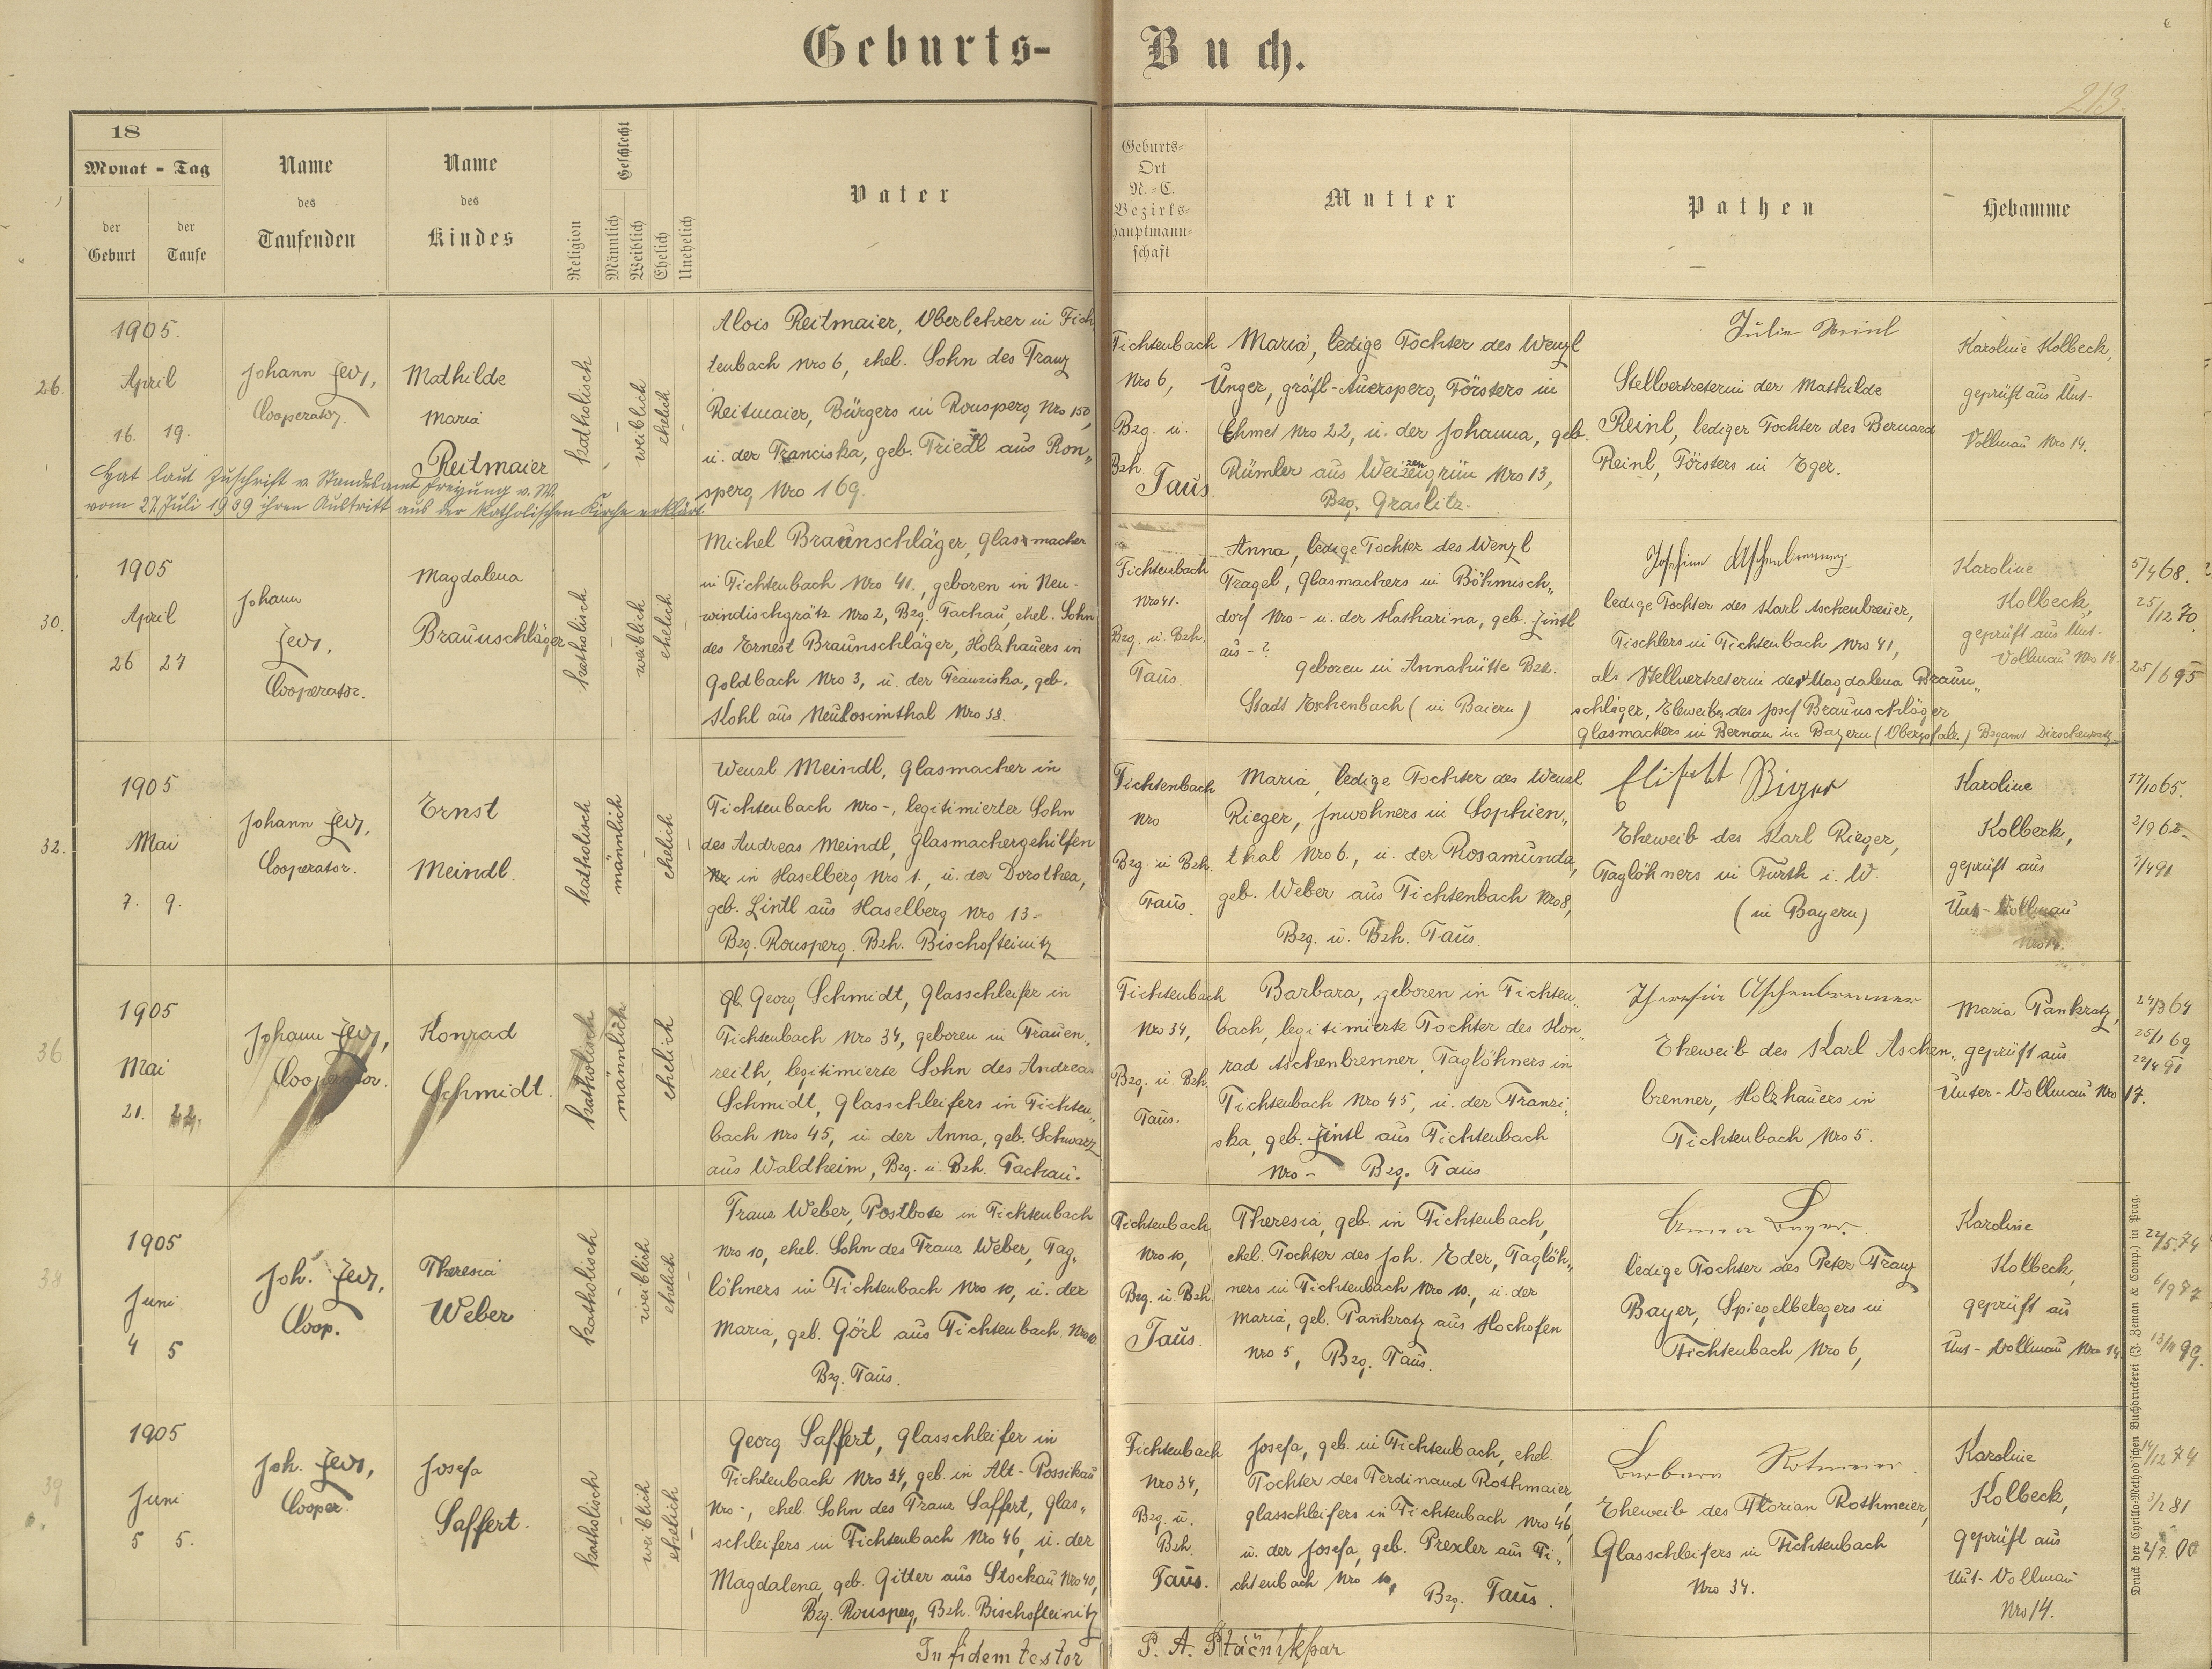 Geburts- Buch.
213.
18
Monat - Tag
der Geburt
der Taufe
Name
des
Taufenden
Name
des
Kindes
Religion
Geschlecht
Männlich
Weiblich
Ehelich
Unehelich
Vater
Geburts-
Ort
N.-C.
Bezirks-
hauptmann-
schaft
Mutter
Pathen
Hebamme
26.
1905.
April
16. 19.
Johann Jeds,
Cooperator.
Mathilde
Maria
Reitmaier
katholisch
weiblich
ehelich
Alois Reitmaier, Oberlehrer in Fich
tenbach Nro 6, ehel. Sohn des Franz
Reitmaier, Bürgers in Ronsperg Nro 150,
u. der Franciska, geb. Friedl aus Ron„
sperg Nro 169.
Hat laut Zuschrift v. Standesamt Freyung v. W.
vom 27. Juli 1939 ihren Austritt aus der katholischen Kirche erklärt.
Fichtenbach
Nro 6,
Bzg. u.
Bzh.
Taus.
Maria, ledige Tochter des Wenzl
Unger, gräfl-Auersperg, Försters in
Ehmet Nro 22, u. der Johanna, geb.
Rümler aus Weizengrün Nro 13,
Bzg. Graslitz.
Julie Reinl
Stellvertreterin der Mathilde
Reinl, lediger Tochter des Bernard
Reinl, Försters in Eger.
Karoline Kolbeck,
geprüft aus Unt-
Vollmau Nro 14.
30.
1905
April
26 27
Johann
Jeds,
Cooperator.
Magdalena
Braunschläger
katholisch
weiblich
ehelich
Michel Braunschläger, Glasmacher
in Fichtenbach Nro 41., geboren in Neu-
windischgrätz Nro 2, Bzg. Tachau, ehel. Sohn
des Ernest Braunschläger, Holzhauers in
Goldbach Nro 3, u. der Franziska, geb.
Kohl aus Neulosimthal Nro 38.
Fichtenbach
Nro 41.
Bzg. u. Bzh.
Taus.
Anna, ledige Tochter des Wenzl
Tragel, Glasmachers in Böhmisch„
dorf Nro - u. der Katharina, geb. Zintl
aus - ?
geboren in Annahütte Bzk.
Stadt Eschenbach (in Baiern)
Josefine Aschenbrenner
ledige Tochter des Karl Aschenbrener,
Tischlers in Fichtenbach Nro 41,
als Stellvertreterin der Magdalena Braun„
schläger, Eheweibes des Josef Braunschläger
Glasmachers in Bernau in Bayern (Oberpfalz.) Bzgamt Dirschenreth
Karoline
Kolbeck,
geprüft aus Unt-
Vollmau Nro 14.
5/4 68.
25/12 70
25/6 95
32.
1905
Mai
7. 9.
Johann Jeds,
Cooperator.
Ernst
Meindl.
katholisch
männlich
ehelich
Wenzl Meindl, Glasmacher in
Fichtenbach Nro -, legitimierter Sohn
des Andreas Meindl, Glasmachergehilfen
in Haselberg Nro 1., u. der Dorothea,
geb. Lintl aus Haselberg Nro 13-
Bzg. Ronsperg. Bzh. Bischofteinitz
Fichtenbach
Nro
Bzg. u. Bzh.
Taus.
Maria, ledige Tochter des Wenzl
Rieger, Inwohners in Sophien„
thal Nro 6., u. der Rosamunda,
geb. Weber aus Fichtenbach Nro 8,
Bzg. u. Bzh. Taus.
Elisabett Riger
Eheweib des Karl Rieger,
Taglöhners in Furth i. W.
(in Bayern)
Karoline
Kolbeck,
geprüft aus
Unt-Vollmau
Nro 14.
17/10 65.
2/9 62.
7/4 91
36.
1905
Mai
21. 22.
Johann Jeds,
Cooperator.
Konrad
Schmidt.
katholisch
männlich
ehelich
Georg Schmidt, Glasschleifer in
Fichtenbach Nro 34, geboren in Frauen„
reith, legitimierte Sohn des Andreas
Schmidt, Glasschleifers in Fichten„
bach Nro 45, u. der Anna, geb. Schwarz
aus Waldheim, Bzg. u. Bzh. Tachau.
Fichtenbach
Nro 34,
Bzg. u. Bzh.
Taus.
Barbara, geboren in Fichten„
bach, legitimierte Tochter des Kon„
rad Aschenbrenner, Taglöhners in
Fichtenbach Nro 45, u. der Franzi„
ska, geb. Zintl aus Fichtenbach
Nro - Bzg. Taus.
Theresia Aschenbrenner
Eheweib des Karl Aschen„
brenner, Holzhauers in
Fichtenbach Nro 5.
Maria Pankratz,
geprüft aus
Unter-Vollmau Nro 17.
24/3 64
25/1 69
22/4 91
38
1905
Juni
4 5
Joh. Jeds,
Coop.
Theresia
Weber
katholisch
weiblich
ehelich
Franz Weber, Postbote in Fichtenbach
Nro 10, ehel. Sohn des Franz Weber, Tag„
löhners in Fichtenbach Nro 10, u. der
Maria, geb. Görl aus Fichtenbach Nro 10.
Bzg. Taus.
Fichtenbach
Nro 10,
Bzg. u. Bzh.
Taus.
Theresia, geb. in Fichtenbach,
ehel. Tochter des Joh. Eder, Taglöh„
ners in Fichtenbach Nro 10., u. der
Maria, geb. Pankratz aus Hochofen
Nro 5, Bzg. Taus.
Anna Bayer.
ledige Tochter des Peter Franz
Bayer, Spiegelbelegers in
Fichtenbach Nro 6,
Karoline
Kolbeck,
geprüft aus
Unt-Vollmau, Nro 14.
22/5 74
6/9 77
13/11 99.
39
1905
Juni
5 5.
Joh. Jeds,
Cooper.
Josefa
Saffert.
katholisch
weiblich
ehelich
Georg Saffert, Glasschleifer in
Fichtenbach Nro 34, geb. in Alt-Possikau
Nro -, ehel. Sohn des Franz Saffert, Glas„
schleifers in Fichtenbach Nro 46, u. der
Magdalena, geb. Gitter aus Stockau Nro 40,
Bzg. Ronsperg, Bzh. Bischofteinitz
Fichtenbach
Nro 34,
Bzg. u.
Bzh.
Taus.
Josefa, geb. in Fichtenbach, ehel.
Tochter des Ferdinand Rothmaier,
Glasschleifers in Fichtenbach Nro 46,
u. der Josefa, geb. Prexler aus Fi„
chtenbach Nro 10, Bzg. Taus.
Barbara Rotmeier.
Eheweib des Florian Rothmeier,
Glasschleifers in Fichtenbach
Nro 34.
Karoline
Kolbeck,
geprüft aus
Unt-Vollmau
Nro 14.
14/12 74
3/2 81
2/7. 00
In fidem testor P. A. Ptáčník par
Druck der Cyrillo-Method'schen Buchdruckerei (J. Zeman & Comp.) in Prag.